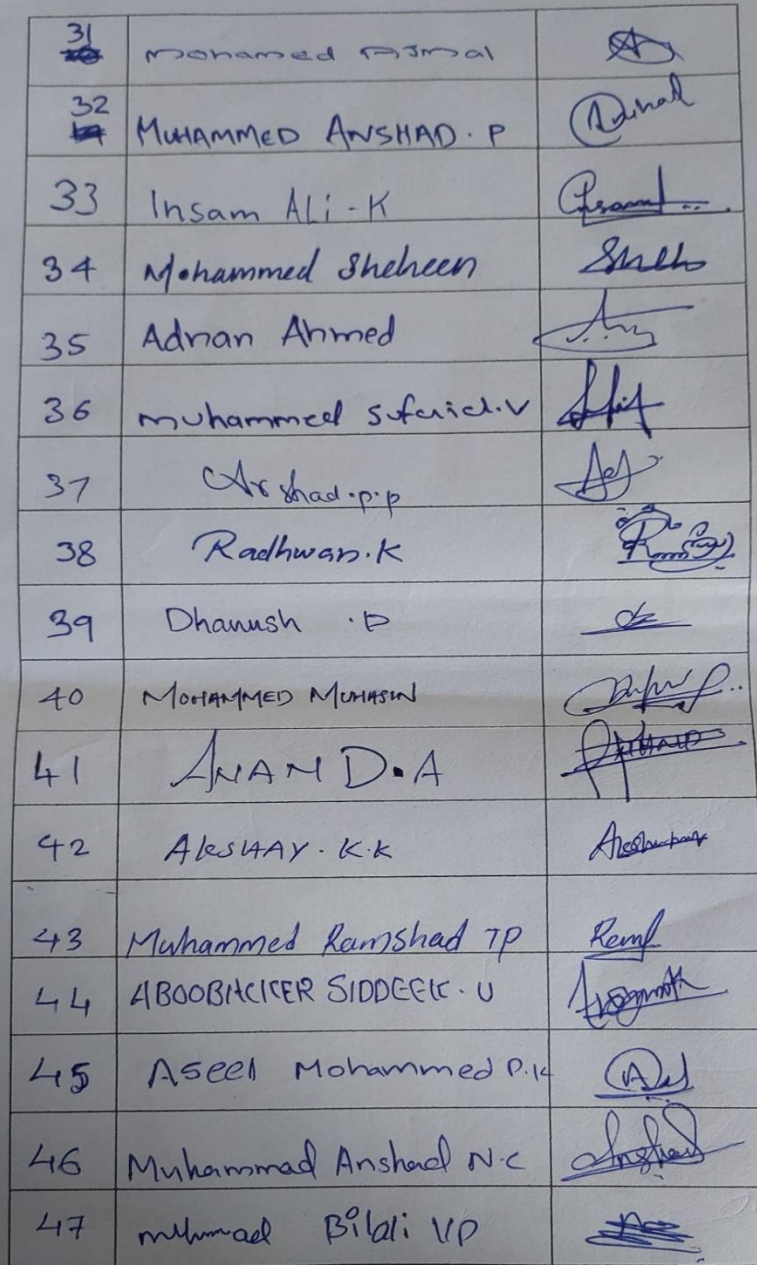 31 Mohamed Ajmal
32 MUHAMMED ANSHAD. P
33 Insam ALi - K
34 Mohammed Sheheen Sheh
35 Adnan Ahmed
36 muhammed Sufaid.V
37 Arshad.p.p
38 Radhwan.K
39 Dhanush .P
40 MOHAMMED MUHASIN
41 ANAND.A
42 AKSHAY. K.K
43 Muhammed Ramshad TP Ramf
44 ABOOBACKER SIDDEEK. U
45 Aseel Mohammed P.K
46 Muhammad Anshad N.C Anshad
47 Bilali VP